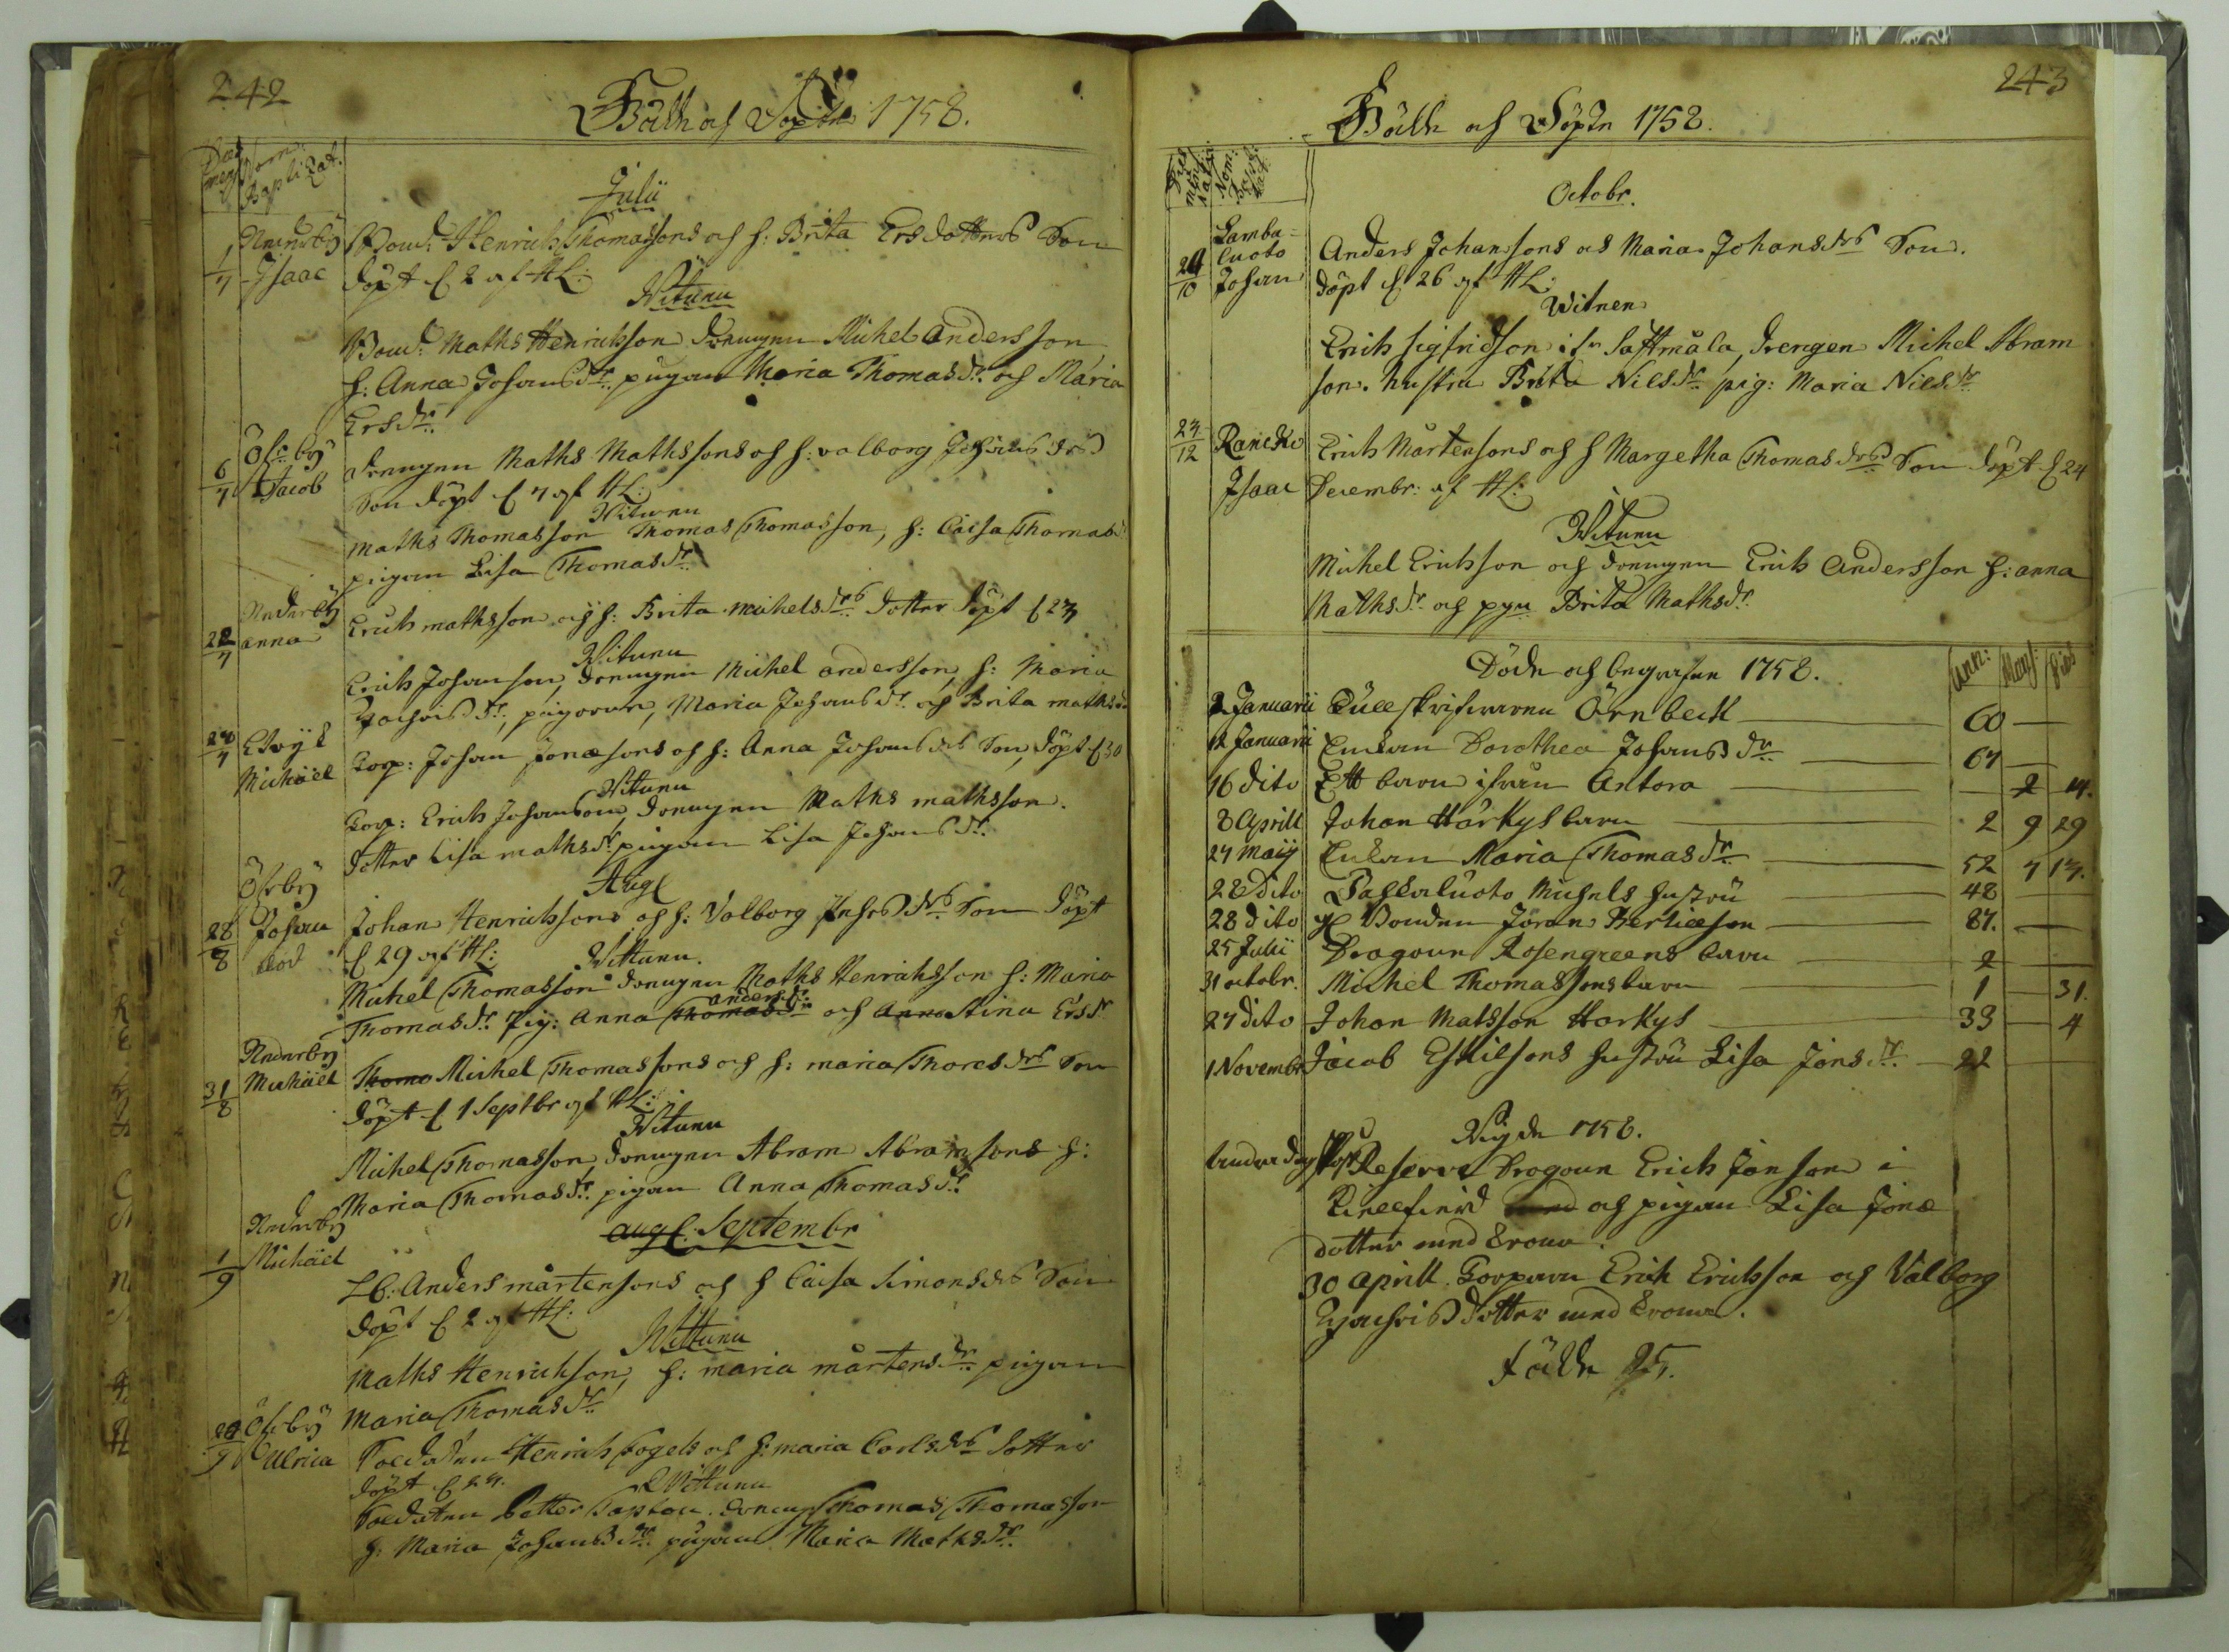 242
Födde och Döpte 1758.
Nom: Baptizat.
Julii
Nederby Bond: Henrich Thomassons och h: Brita Ersdotters Son
1/7 Isaac döpt d 2 af HL:
Witnen
Bond: Maths Henrichsson drengen Michel Andersson
h: Anna Johansdr. pigan Maria Thomasdr. och Maria
Ersdr.
Öfr by drengen Maths Mathssons och h: Valborg drs
6/7 Jacob Son döpt d 7 af HL:
Witnen
Maths Thomasson Thomas Thomasson, h: Caisa Thomasd
pigan Lisa Thomasdr
Nederby Erich mathsson och h: Brita michelsdrs dotter döpt d 23
22/7 anna
Witnen
Erich Johanson, drengen Michel andersson, h: Maria
Zachrisdr., pigorna, Maria Johansdr. och Brita mathsdr
Michäel Corp: Johan jonæsons och h: Anna Johansdrs Son, döpt d 30
Witnen
Corp: Erich Johanson, drengen Maths mathsson.
dotter Lisa mathsdr. pigan Lisa Johansdr.
Aug
Öfrby
28/8 Johan Johan Henrichsons och h: Valborg drs Son döpt
död d 29 af HL: Wittnen.
Michel Thomasson drengen Maths Henrichsson h: Maria
andersdr.
Thomasdr. Pig: Anna Thomasdr och Anna Stina Ersdr
Nederby
31/8 Michäel Thoma Michel Thomassons och h: maria drs Son
döpt d 1 Septbr af HL:
Witnen
Michel Thomasson, drengen Abram Abramsons h:
Maria Thomasdr. pigan Anna Thomasdr.
Nederby
aug. Septembr
1/9 Michäel
Anders mårtensons och h Caisa Simonsdrs Son
döpt d 2 af HL:
Wittnen
Maths Henrichson, h: maria mårtensdr. pigan
Maria Thomasdr
Öfrby
Ulrica Soldaten Henrich Fogels och h: maria Carlsdrs dotter
döpt d
Wittnen
Soldaten Petter dreng Thomas Thomasson
h: Maria Johansdr. pigan Maria Mathsdr.
243
Födde och Döpte 1758.
Nom:
Octobr.
Lamba=
luoto Anders Johansons och Maria Johansdrs Son.
Johan döpt d 26 af HL:
Witnen
Erich Sigfridson ifr Saffmåla, drengen Michel Abram
son. hustru Brita Nilsdr pig: Maria Nilsdr.
23/12 Erich Mårtensons och h Margetha Thomasdrs Son döpt d 24
Isaac Decembr: af HL:
Witnen
Michel Erichsson och drengen Erich Andersson h: anna
Mathsdr. och pigan Brita Mathsdr.
Döde och begrafne 1758. Ann: Mens: Dies
2 Januarii Örnbech 60
12 Januarii Enkan Dorothea Johansdr 67
16 dito Ett barn ifrån Antora 2 14.
8 Aprill Johan Harkys barn 2 9 29
27 Maij Enkan Maria Thomasdr 52 7 13.
28 dito Michels hustru 48
28 dito Bonden Jöran Bertilsson 87.
25 Julii Dragoun Rosengreens barn 2
31 octobr. Michel Thomassons barn 1 31.
27 dito Johan Matsson Harkys 33 4
1 Novembr Jacob Eskilsons hustru Lisa Jonsdr. 22
Wigde 1758.
annandag Påsk Reserve Dragoun Erich Jonson i
och pigan Lisa Jonæ
dotter med Crona.
30 Aprill. Torparen Erich Erichsson och Valborg
Zachrisdotter med Crona.
födde 25.